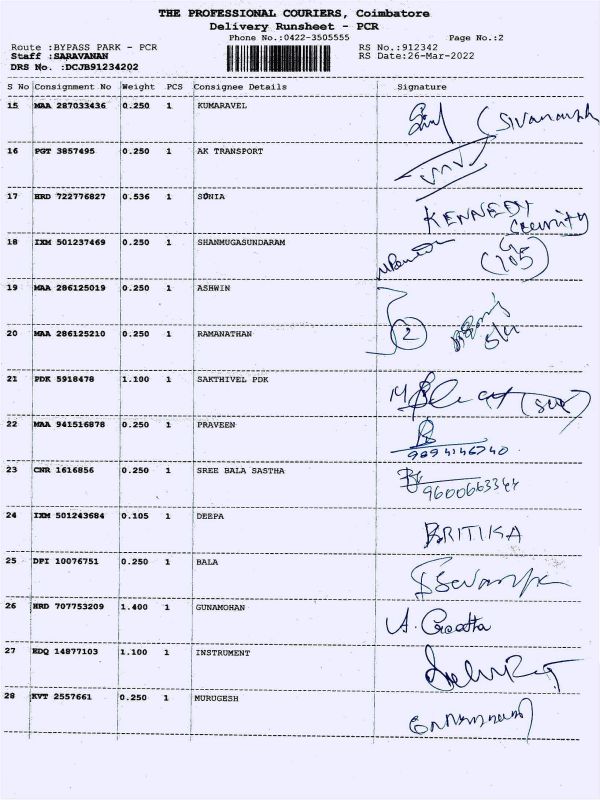 THE PROFESSIONAL COURIERS, Coimbatore
Delivery Runsheet - PCR
Phone No.:0422-3505555 Page No.:2
Route :BYPASS PARK - PCR RS No.:912342
Staff :SARAVANAN RS Date:26-Mar-2022
DRS No. :DCJB91234202
S No Consignment No Weight PCS Consignee Details Signature
15 MAA 287033436 0.250 1 KUMARAVEL
16 PGT 3857495 0.250 1 AK TRANSPORT
17 HRD 722776827 0.536 1 SONIA KENNEDY
18 IXM 501237469 0.250 1 SHANMUGASUNDARAM
19 MAA 286125019 0.250 1 ASHWIN
20 MAA 286125210 0.250 1 RAMANATHAN 2
21 PDK 5918478 1.100 1 SAKTHIVEL PDK
22 MAA 941516878 0.250 1 PRAVEEN
23 CNR 1616856 0.250 1 SREE BALA SASTHA
24 IXM 501243684 0.105 1 DEEPA BRITIKA
25 DPI 10076751 0.250 1 BALA
26 HRD 707753209 1.400 1 GUNAMOHAN
27 EDQ 14877103 1.100 1 INSTRUMENT
28 KVT 2557661 0.250 1 MURUGESH